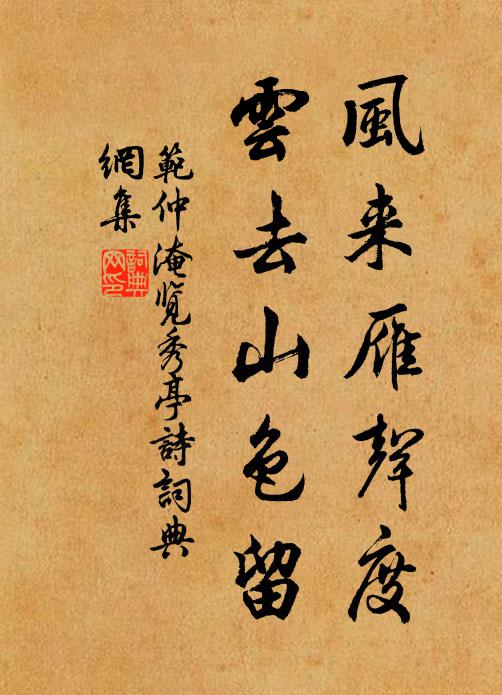 風来雁聲度
雲去山色留
範仲淹览秀亭詩詞典
網集
詞典
网印